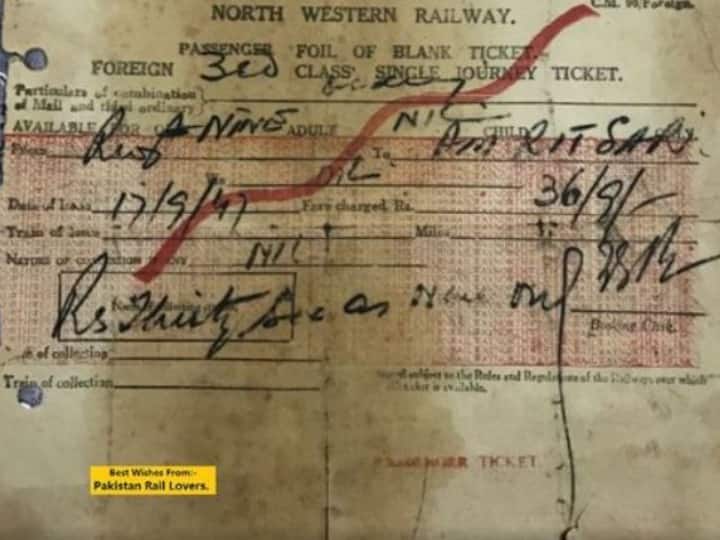 C.M. 90/Foreign.
NORTH WESTERN RAILWAY.
PASSENGER FOIL OF BLANK TICKET.
FOREIGN 3rd CLASS SINGLE JOURNEY TICKET.
Particulars of combination
of Mail and third ordinary
AVAILABLE FOR NINE ADULT NIL CHILD
From To AMRITSAR
NIL
Date of Issue 17/9/47 Fare charged Rs. 36/9/-
Train of Issue Miles
NIL
Rs Thirty Six as Nine only
Booking Clerk.
of collection
Train of collection
Issued subject to the Rules and Regulations of the Railways over which
ticket is available.
PASSENGER TICKET
Best Wishes From:-
Pakistan Rail Lovers.